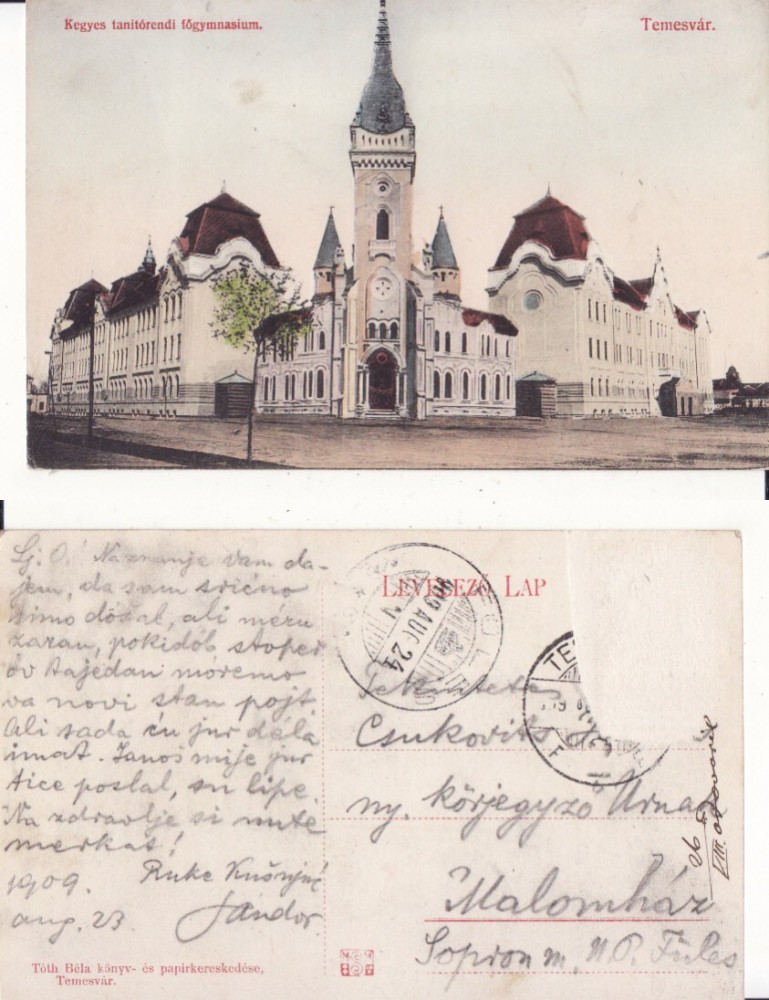 Kegyes tanitórendi főgymnasium.
Temesvár.
Lj. O.! Naznanje vam da-
jem, da sam srićno
simo došal, ali
zaran, pokidob
ov tajedan móremo
va novi stan pojt.
Ali sada ću jur déla
imat. Janoš mi je jur
tice poslal, su lipe.
Na zdravlje si
merkat!
1909. Ruke Kušujuć
aug. 23. Sándor
Tóth Béla könyv- és papirkereskedése,
Temesvár.
LEVELEZŐ LAP
909 AUG 24
Tekintetes
Csukovits
ny. körjegyző Urnak
Malomház
Sopron m. U. P. Füles
26
VIII odgovoril